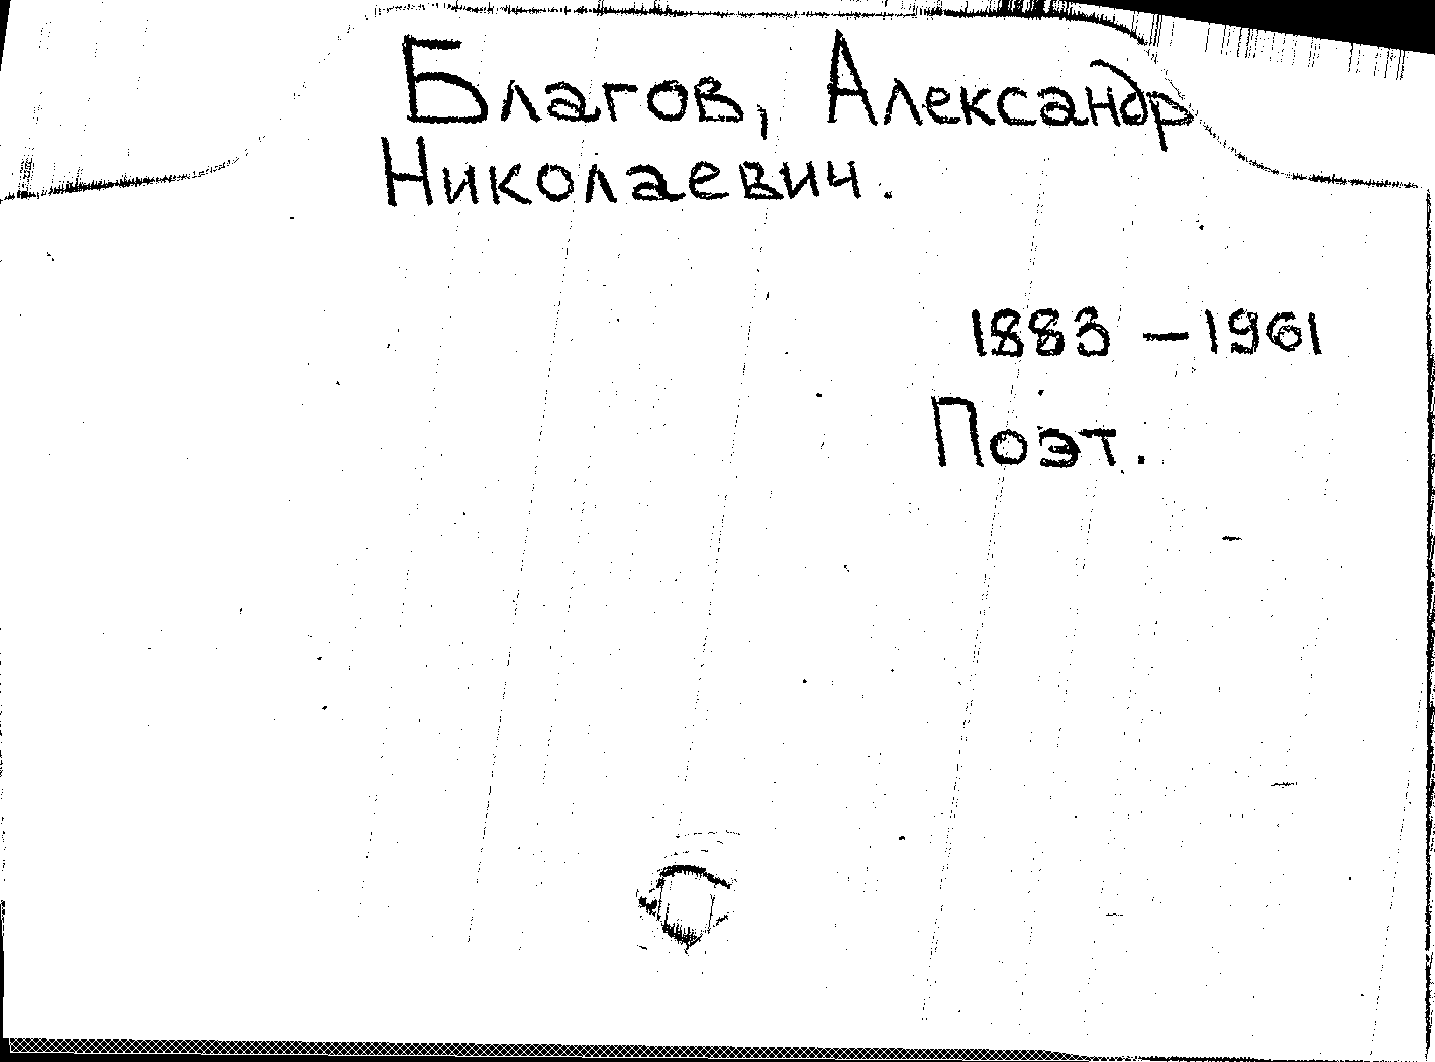 Благов, Александр
Николаевич.
1883 – 1961
Поэт.